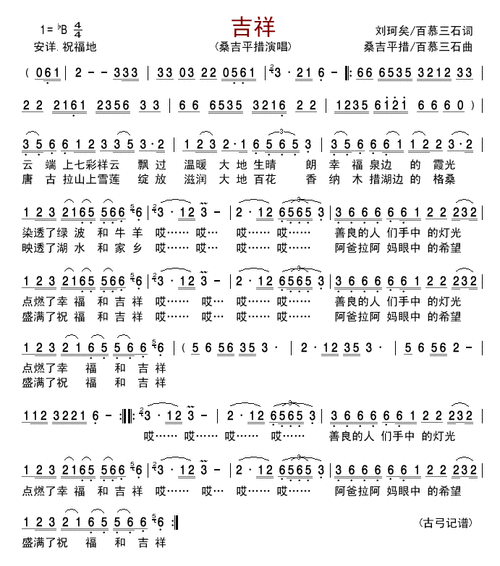 吉祥
1=♭B 4/4
刘珂矣/百慕三石词
安详 祝福地
(桑吉平措演唱)
桑吉平措/百慕三石曲
( 061 | 2 - - 333 | 33 03 22 0561 | 3 · 21 6 - ‖: 66 6535 3212 33 |
22 2161 2356 33 | 66 6535 3216 22 | 1235 6121 6660 ) |
3 5 6 6 1 2 3 3 5 3·2 | 1 2 3 2·1 6 5 6 5 3 | 3 5 6 6 6 6 1 1 2 2 3·2 |
云 端 上七彩祥云 飘 过 温暖 大 地 生晴 朗 幸 福 泉边 的 霞光
唐 古 拉山上雪莲 绽 放 滋润 大 地 百花 香 纳 木 措湖边 的 格桑
1 2 3 2165 566 6 | 3 · 12 3 - | 2 · 12 6565 3 | 3 6 6 6 6 6 1 2 2 232 |
染透了绿 波 和 牛 羊 哎…… 哎… 哎… 哎…… 善良的人 们手中 的灯光
映透了湖 水 和 家 乡 哎…… 哎… 哎… 哎…… 阿爸拉阿 妈眼中 的希望
1 2 3 2165 566 6 | 3 · 12 3 - | 2 · 12 6565 3 | 3 6 6 6 6 6 1 2 2 232 |
点燃了幸 福 和 吉 祥 哎…… 哎… 哎… 哎…… 善良的人 们手中 的灯光
盛满了祝 福 和 吉 祥 哎…… 哎… 哎… 哎…… 阿爸拉阿 妈眼中 的希望
1 2 3 2 1 6 5 5 6 6 6 | ( 5 6 56 35 3 · | 2 · 12 35 3 · | 5 6 56 2 - |
点燃了幸 福 和 吉 祥
盛满了祝 福 和 吉 祥
112 3221 6 - :‖: 3 · 12 3 - | 2 · 12 6565 3 | 3 6 6 6 6 6 1 2 2 232 |
哎…… 哎…… 哎… 哎…… 善良的人 们手中 的灯光
1 2 3 2165 566 6 | 3 · 12 3 - | 2 · 12 6565 3 | 3 6 6 6 6 6 1 2 2 232 |
点燃了幸 福 和 吉 祥 哎…… 哎… 哎… 哎…… 阿爸拉阿 妈眼中 的希望
1 2 3 2 1 6 5 5 6 6 6 :‖
(古弓记谱)
盛满了祝 福 和 吉 祥